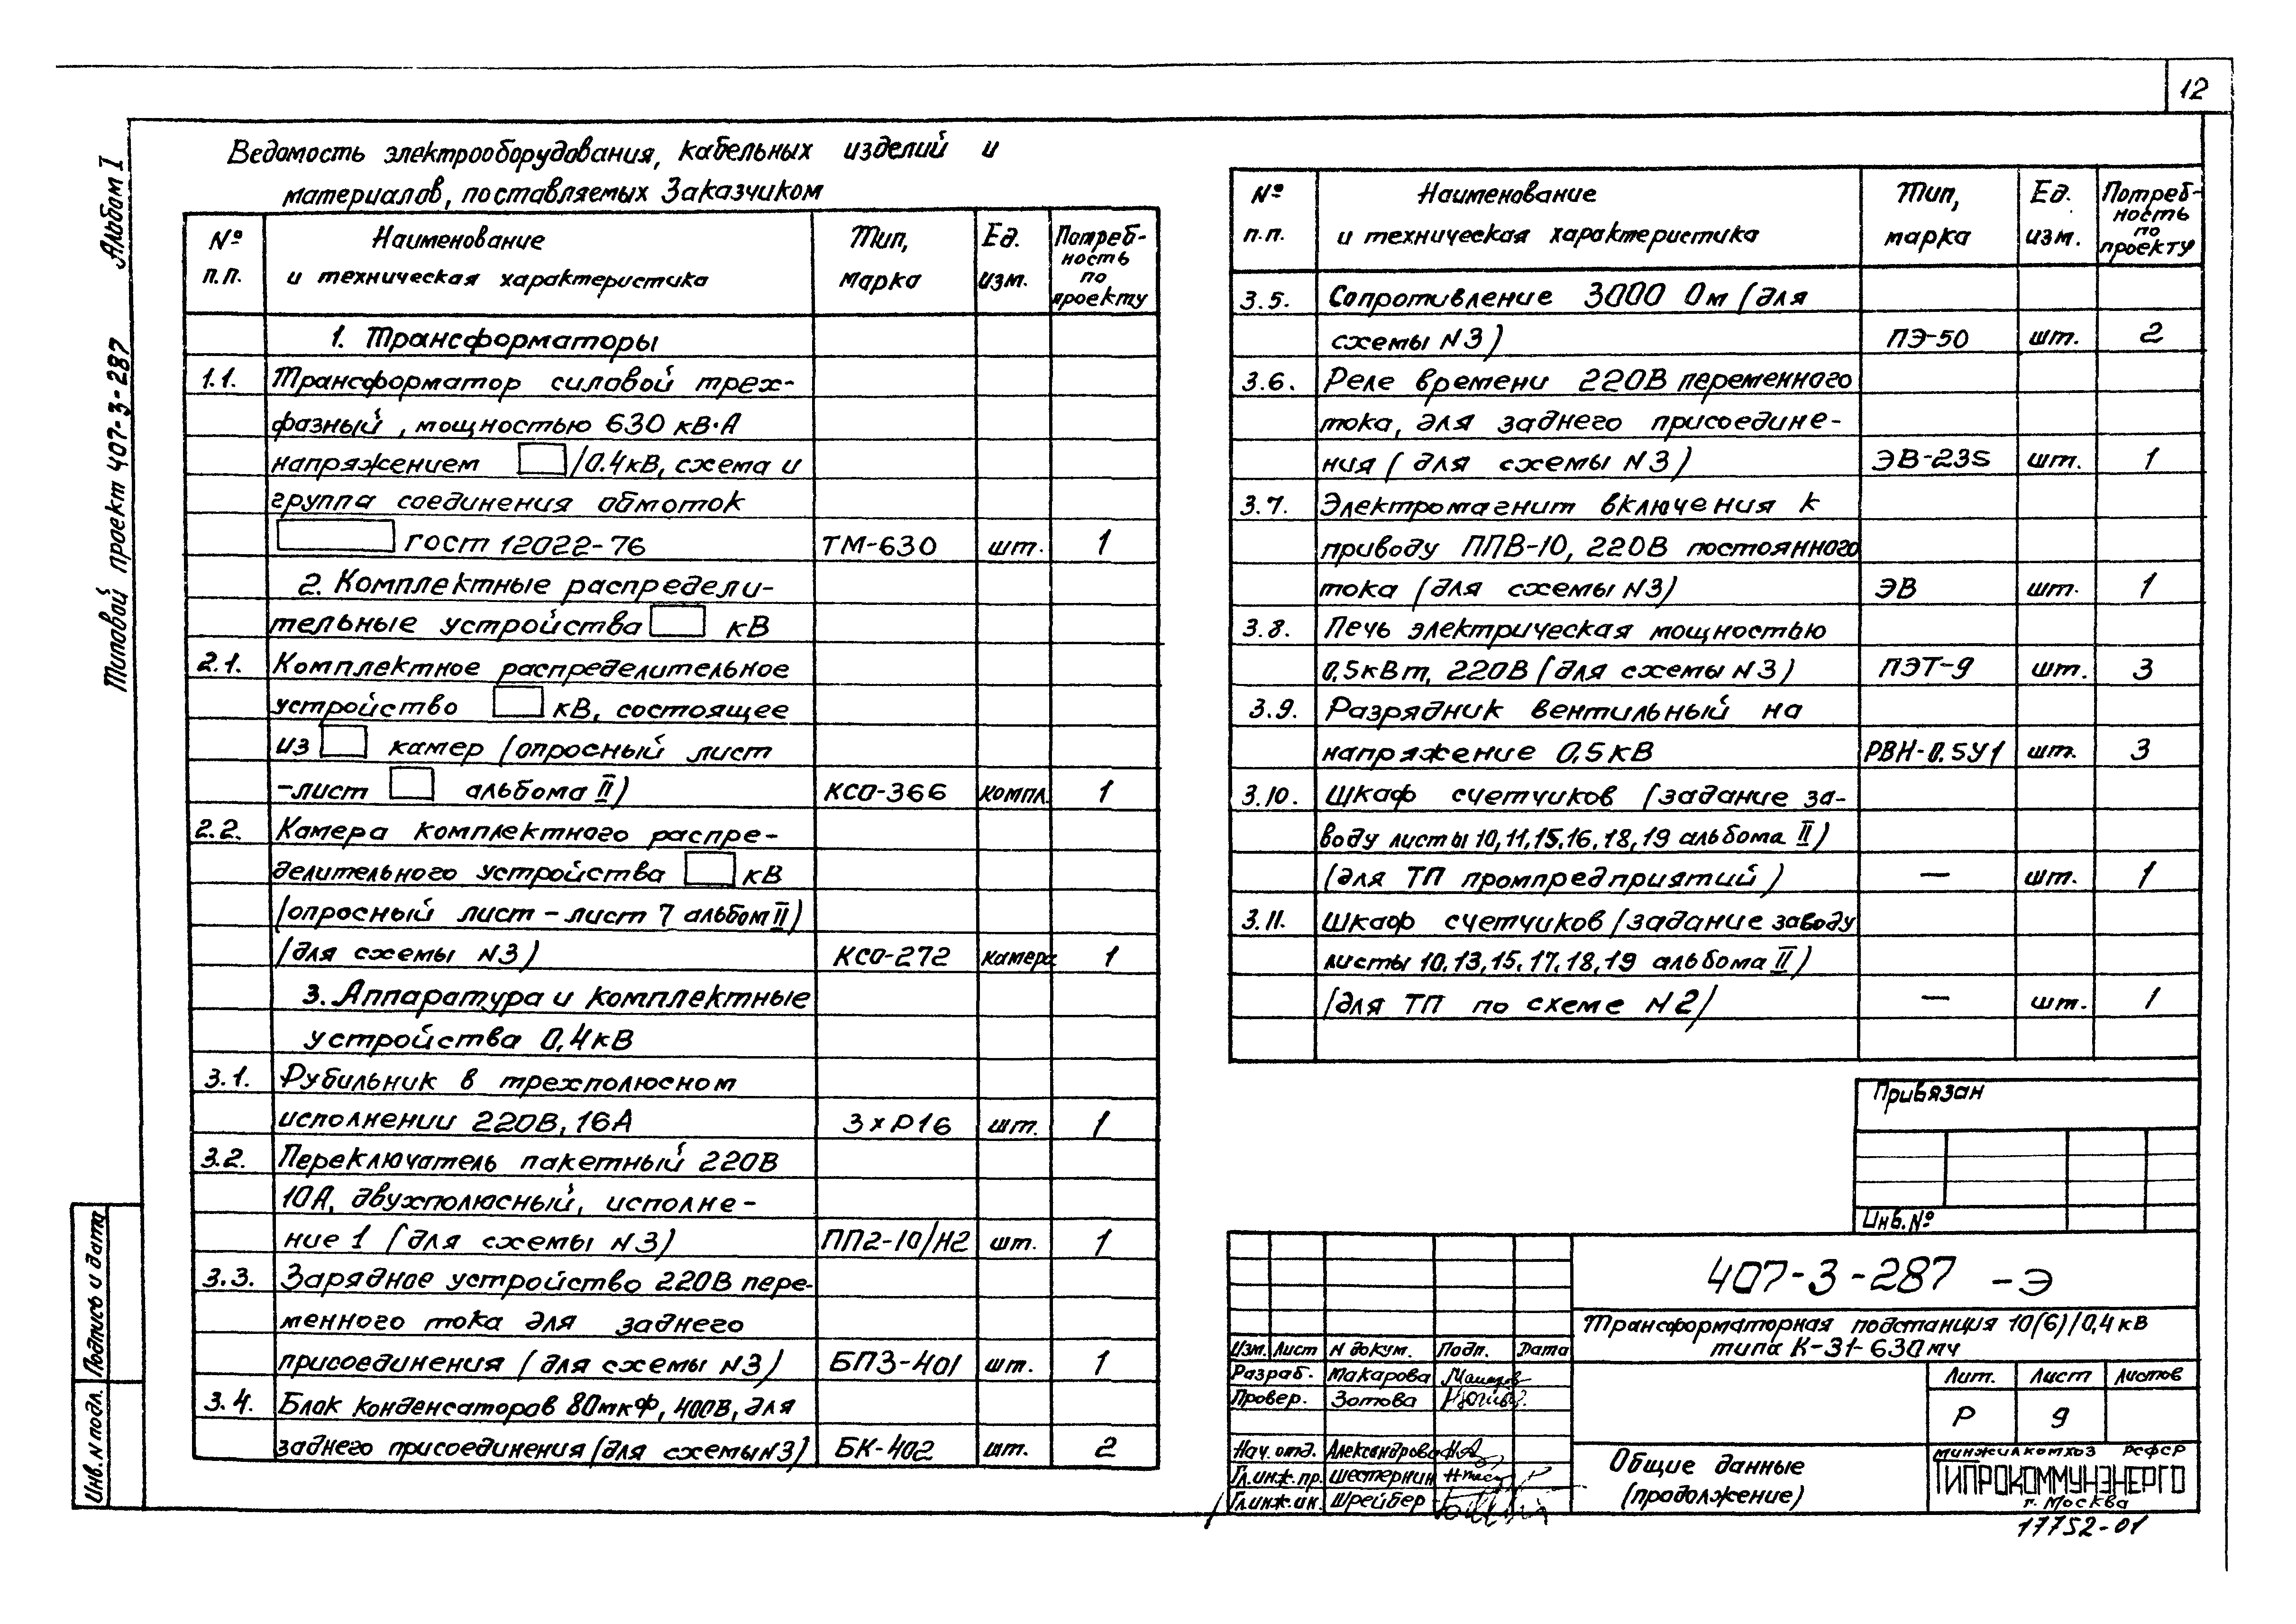 12
Типовой проект 407-3-287 Альбом I
Ведомость электрооборудования, кабельных изделий и
материалов, поставляемых Заказчиком
№ п.п. Наименование и техническая характеристика Тип, марка Ед. изм. Потреб-ность по проекту
1. Трансформаторы
1.1. Трансформатор силовой трех-
фазный, мощностью 630 кВ·А
напряжением /0.4кВ, схема и
группа соединения обмоток
гост 12022-76 ТМ-630 шт. 1
2. Комплектные распредели-
тельные устройства кВ
2.1. Комплектное распределительное
устройство кВ, состоящее
из камер (опросный лист
-лист альбома II) КСО-366 компл. 1
2.2. Камера комплектного распре-
делительного устройства кВ
(опросный лист - лист 7 альбом II)
(для схемы N3) КСО-272 камера 1
3. Аппаратура и комплектные
устройства 0,4кВ
3.1. Рубильник в трехполюсном
исполнении 220В, 16А 3хР16 шт. 1
3.2. Переключатель пакетный 220В
10А, двухполюсный, исполне-
ние 1 (для схемы N3) ПП2-10/Н2 шт. 1
3.3. Зарядное устройство 220В пере-
менного тока для заднего
присоединения (для схемы N3) БПЗ-401 шт. 1
3.4. Блок конденсаторов 80мкФ, 400В, для
заднего присоединения (для схемы N3) БК-402 шт. 2
№ п.п. Наименование и техническая характеристика Тип, марка Ед. изм. Потреб-ность по проекту
3.5. Сопротивление 3000 Ом (для
схемы N3) ПЭ-50 шт. 2
3.6. Реле времени 220В переменного
тока, для заднего присоедине-
ния (для схемы N3) ЭВ-235 шт. 1
3.7. Электромагнит включения к
приводу ППВ-10, 220В постоянного
тока (для схемы N3) ЭВ шт. 1
3.8. Печь электрическая мощностью
0,5кВт, 220В (для схемы N3) ПЭТ-9 шт. 3
3.9. Разрядник вентильный на
напряжение 0,5кВ РВН-0.5У1 шт. 3
3.10. Шкаф счетчиков (задание за-
воду листы 10,11,15,16,18,19 альбома II)
(для ТП промпредприятий) — шт. 1
3.11. Шкаф счетчиков (задание заводу
листы 10,13,15,17,18,19 альбома II)
(для ТП по схеме N2) — шт. 1
Привязан
Инв. №
407-3-287 -Э
Трансформаторная подстанция 10(6)/0,4 кВ
типа К-31-630мч
Изм. Лист N докум. Подп. Дата
Разраб. Макарова
Провер. Зотова
Нач. отд. Александрова
Гл. инж. пр. Шестернин
Гл. инж. ин. Шрейбер
Лит. Лист Листов
Р 9
Общие данные
(продолжение)
минжилкомхоз РСФСР
ГИПРОКОММУНЭНЕРГО
г. Москва
17752-01
Инв. N подл. Подпись и дата